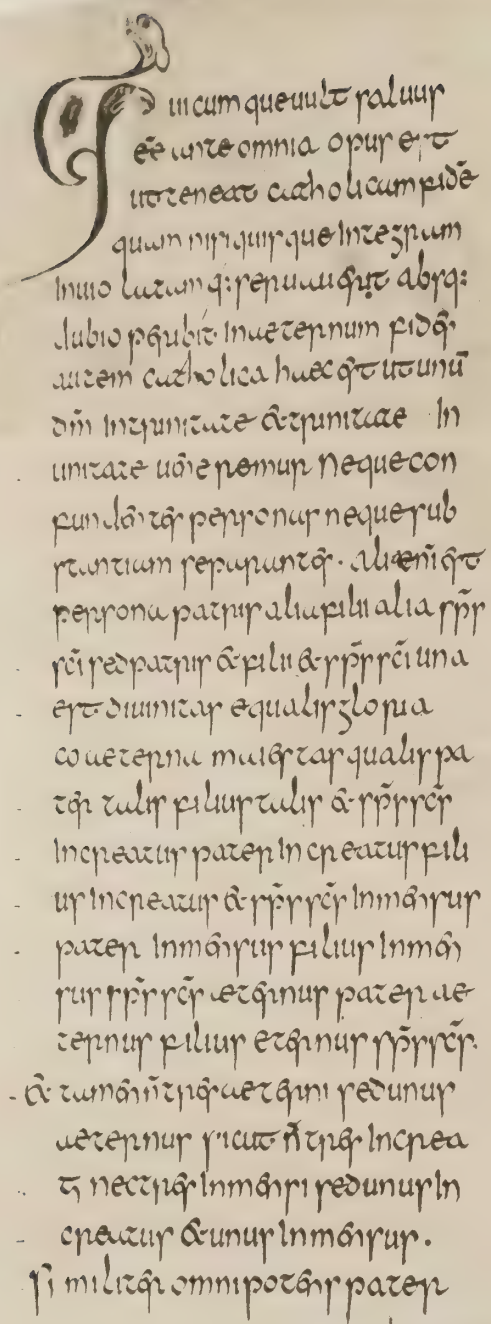 Quicumque uult saluus
eē ante omnia opus est
ut teneat catholicam fidē
quam nisi quisque integram
inuiolatamq: seruauerit absq:
dubio peribit in aeternum fides
autem catholica haec est ut unū
dm̄ in trinitate & trinitatem in
unitate ueneremur neque con
fundentes personas neque sub
stantiam separantes. alia enī est
persona patris alia filii alia sps̄
sc̄i sed patris & filii & sps̄ sc̄i una
est diuinitas equalis gloria
coaeterna maiestas qualis pa
ter talis filius talis & sps̄ scs̄
increatus pater increatus fili
us increatus & sps̄ scs̄ inmensus
pater inmensus filius inmen
sus sps̄ scs̄ aeternus pater ae
ternus filius eternus sps̄ scs̄.
& tamen n̄ tres aeterni sed unus
aeternus sicut n̄ tres increa
ti nec tres inmensi sed unus in
creatus & unus inmensus.
similiter omnipotens pater